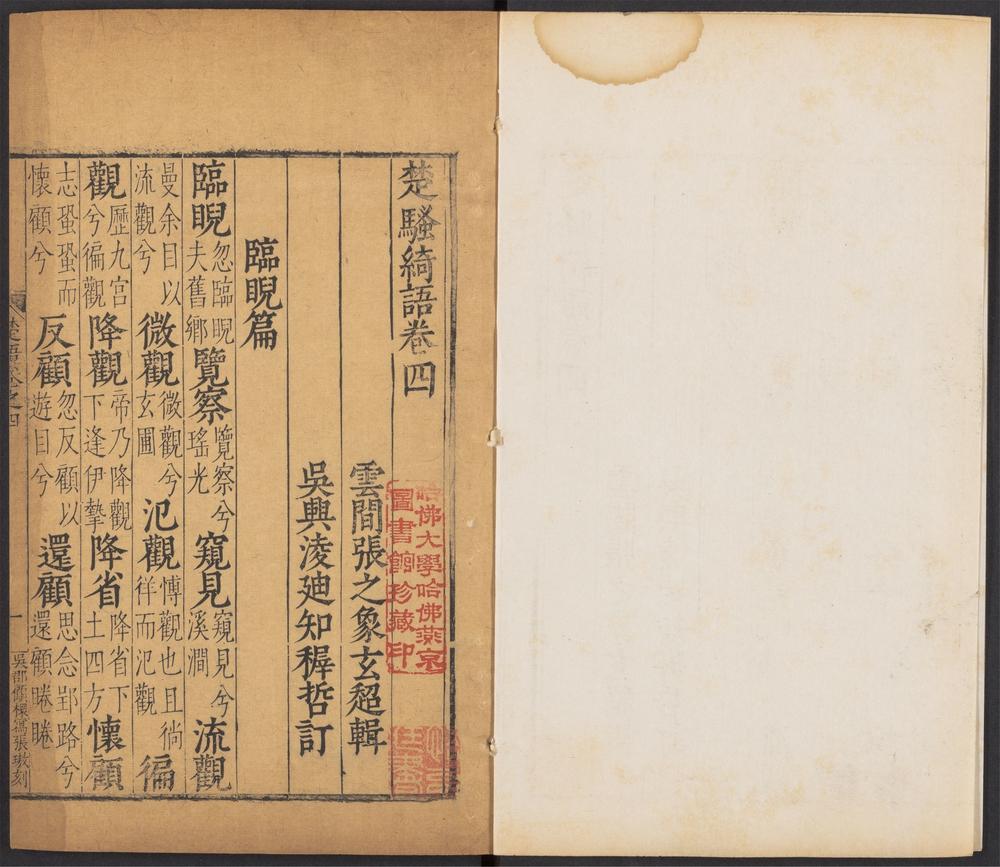 楚騷綺語卷四
雲間張之象玄超輯
吳興淩廸知穉哲訂
臨睨篇
臨睨忽臨睨夫舊鄉覽察覽察兮瑤光窺見窺見兮溪澗流觀
曼余目以流觀兮微觀微觀兮玄圃氾觀慱觀也且徜徉而氾觀徧
觀歷九宫兮徧觀降觀帝乃降觀下逢伊摯降省降省下土四方懷顧
志蛩蛩而懷顧兮反顧忽反顧以遊目兮還顧思念郢路兮還顧睠睠
楚語卷之四
一
吳郡
張璈刻
哈佛大學哈佛燕京圖書館珍藏印